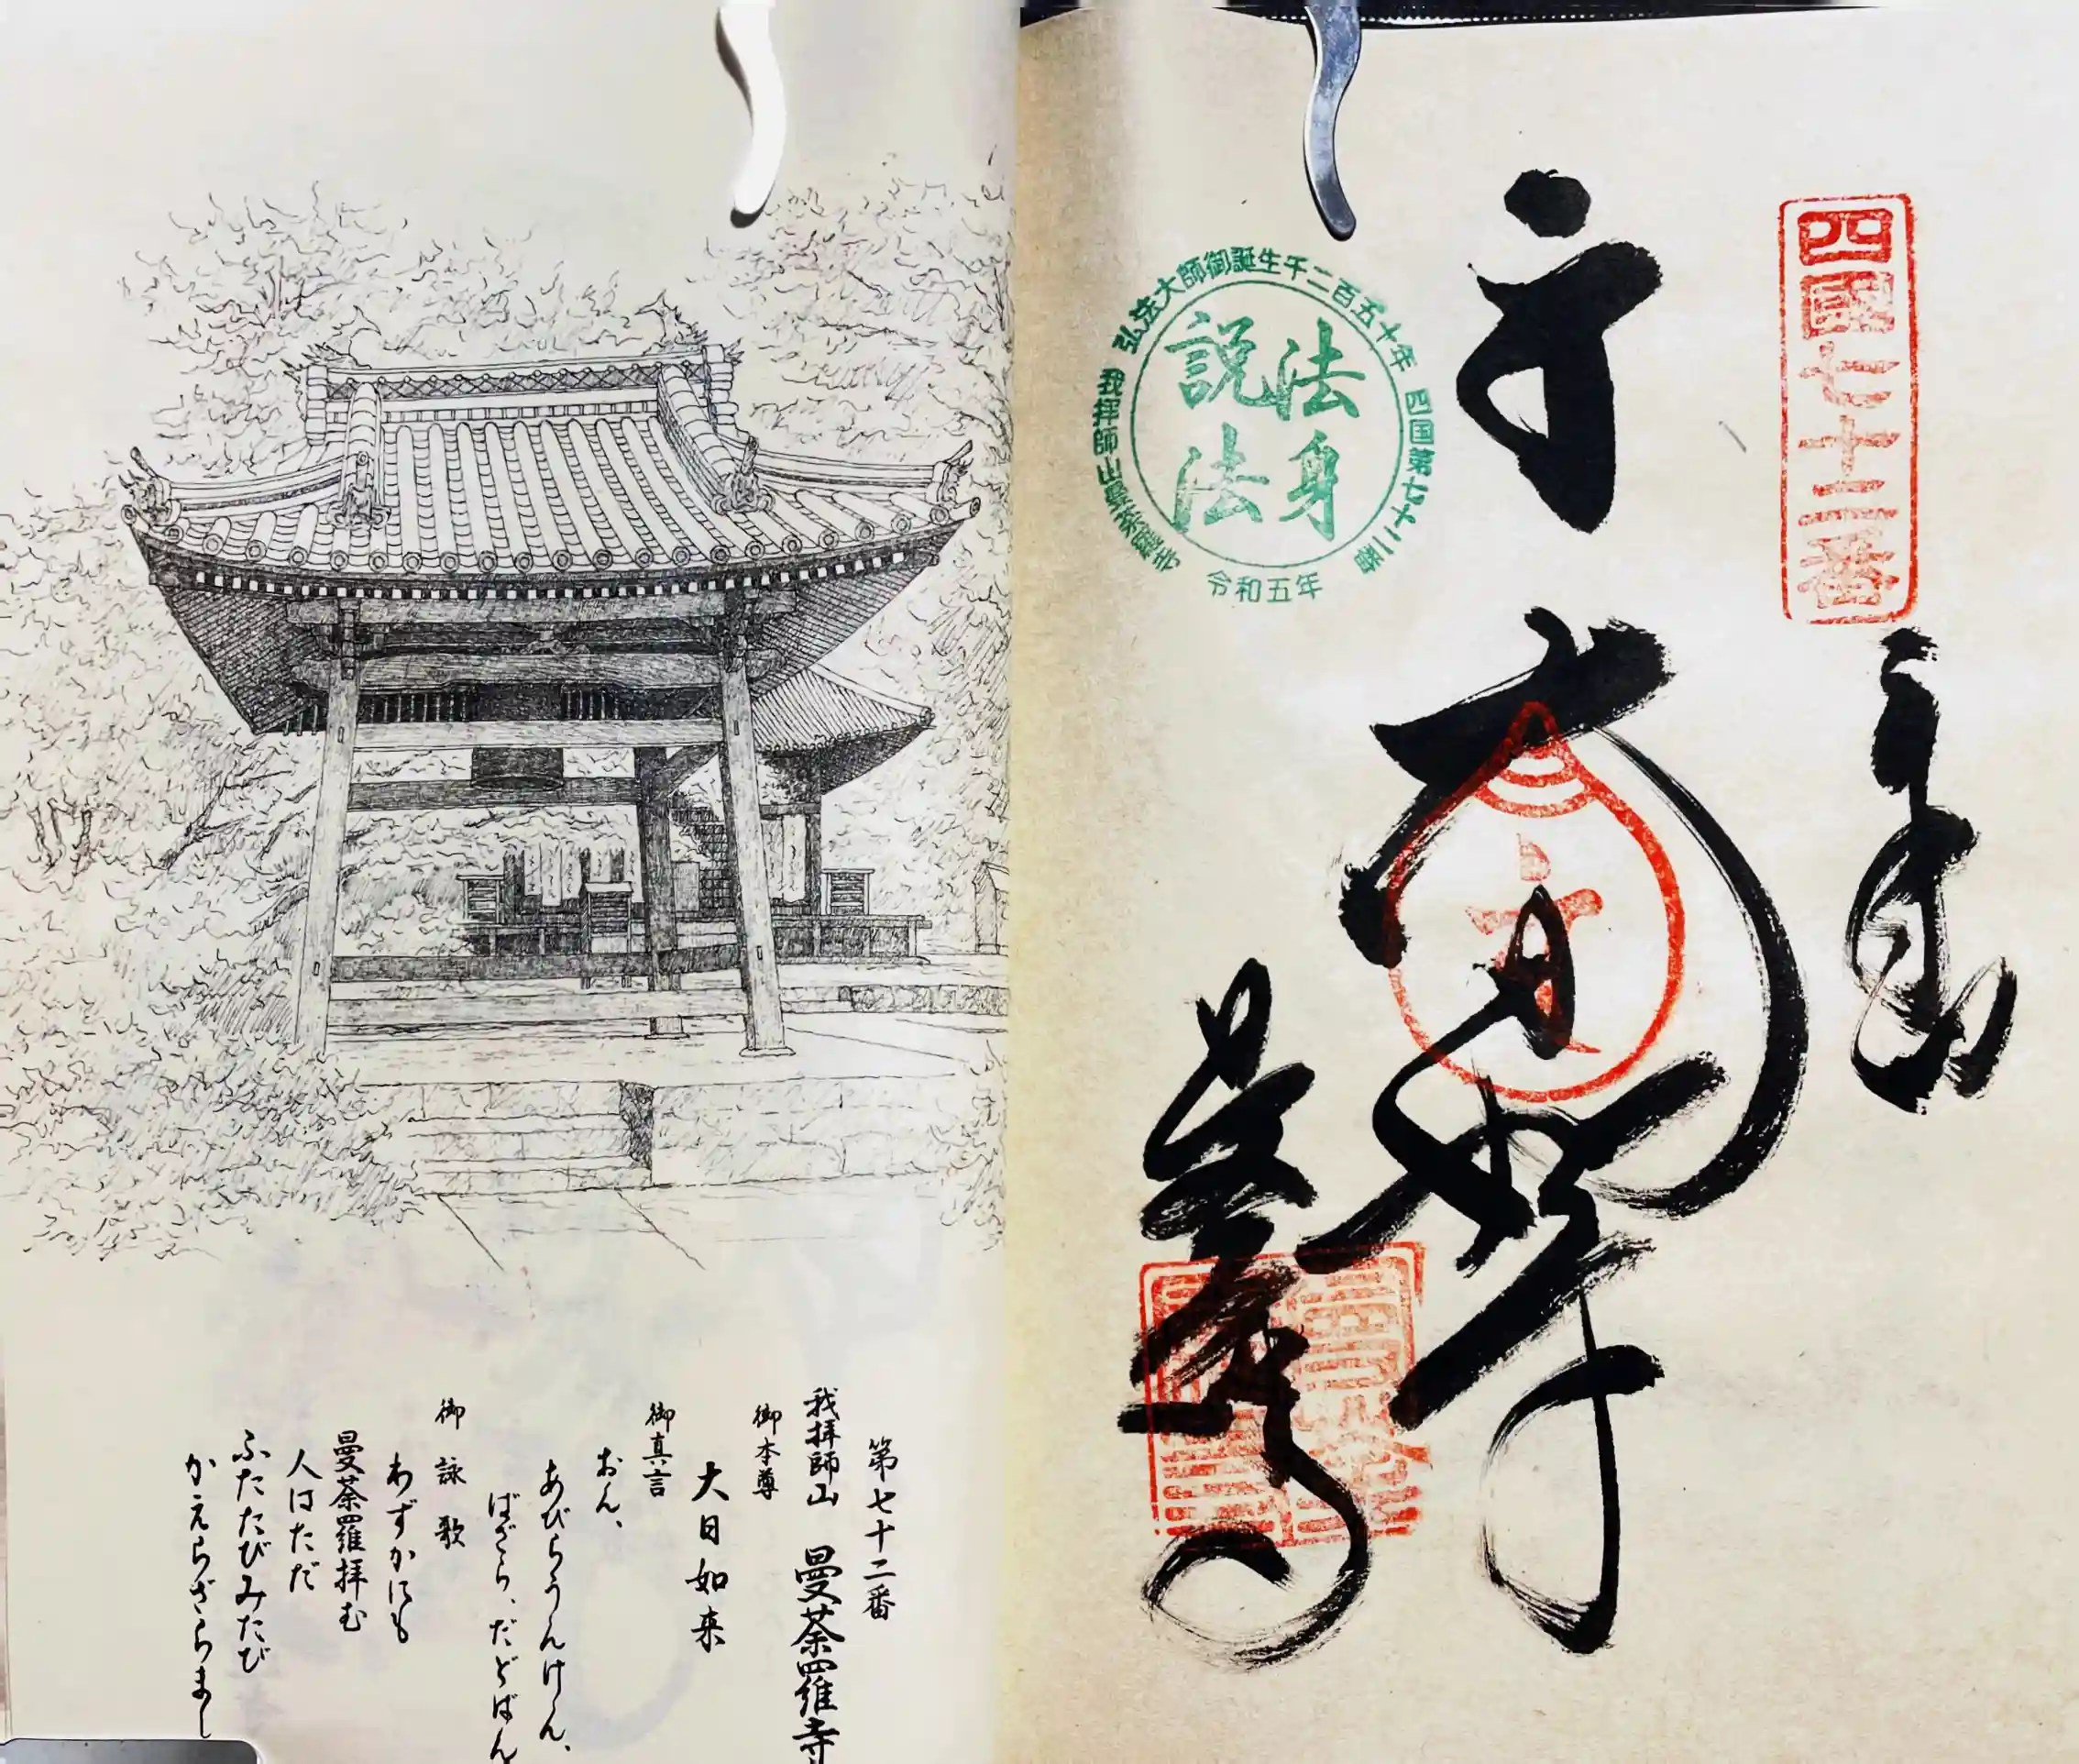 四國七十二番
弘法大師御誕生千二百五十年
四国第七十二番
令和五年
我拝師山曼荼羅寺
法身
説法
第七十二番
我拝師山 曼荼羅寺
御本尊
大日如来
御真言
おん、
あびらうんけん、
ばざら、だどばん
御詠歌
わずかにも
曼荼羅拝む
人はただ
ふたたびみたび
かえらざらまし